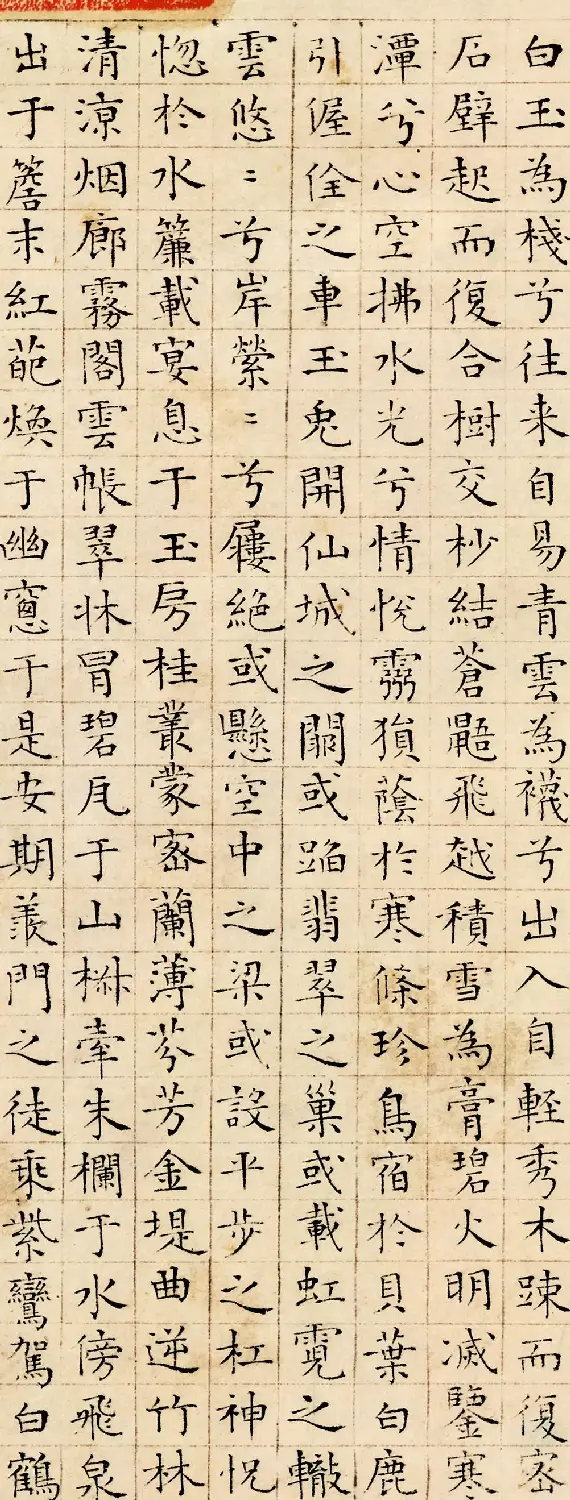 白玉為棧兮往来自易青雲為襪兮出入自軽秀木踈而復宻
石壁起而復合樹交杪結蒼鼯飛越積雪為膏碧火明滅鑒寒
潭兮心空拂水光兮情悦霧狽蔭於寒條珍鳥宿於貝葉白鹿
引偓佺之車玉兎開仙城之闕或蹈翡翠之巢或載虹霓之轍
雲悠〻兮岸縈〻兮屨絶或懸空中之梁或設平步之杠神怳
惚於水簾載宴息于玉房桂叢蒙宻蘭薄芬芳金堤曲逆竹林
清涼烟廊霧閣雲帳翠牀冒碧瓦于山椒牽朱欄于水傍飛泉
出于簷末紅葩煥于幽窻于是安期羨門之徒乘紫鸞駕白鶴